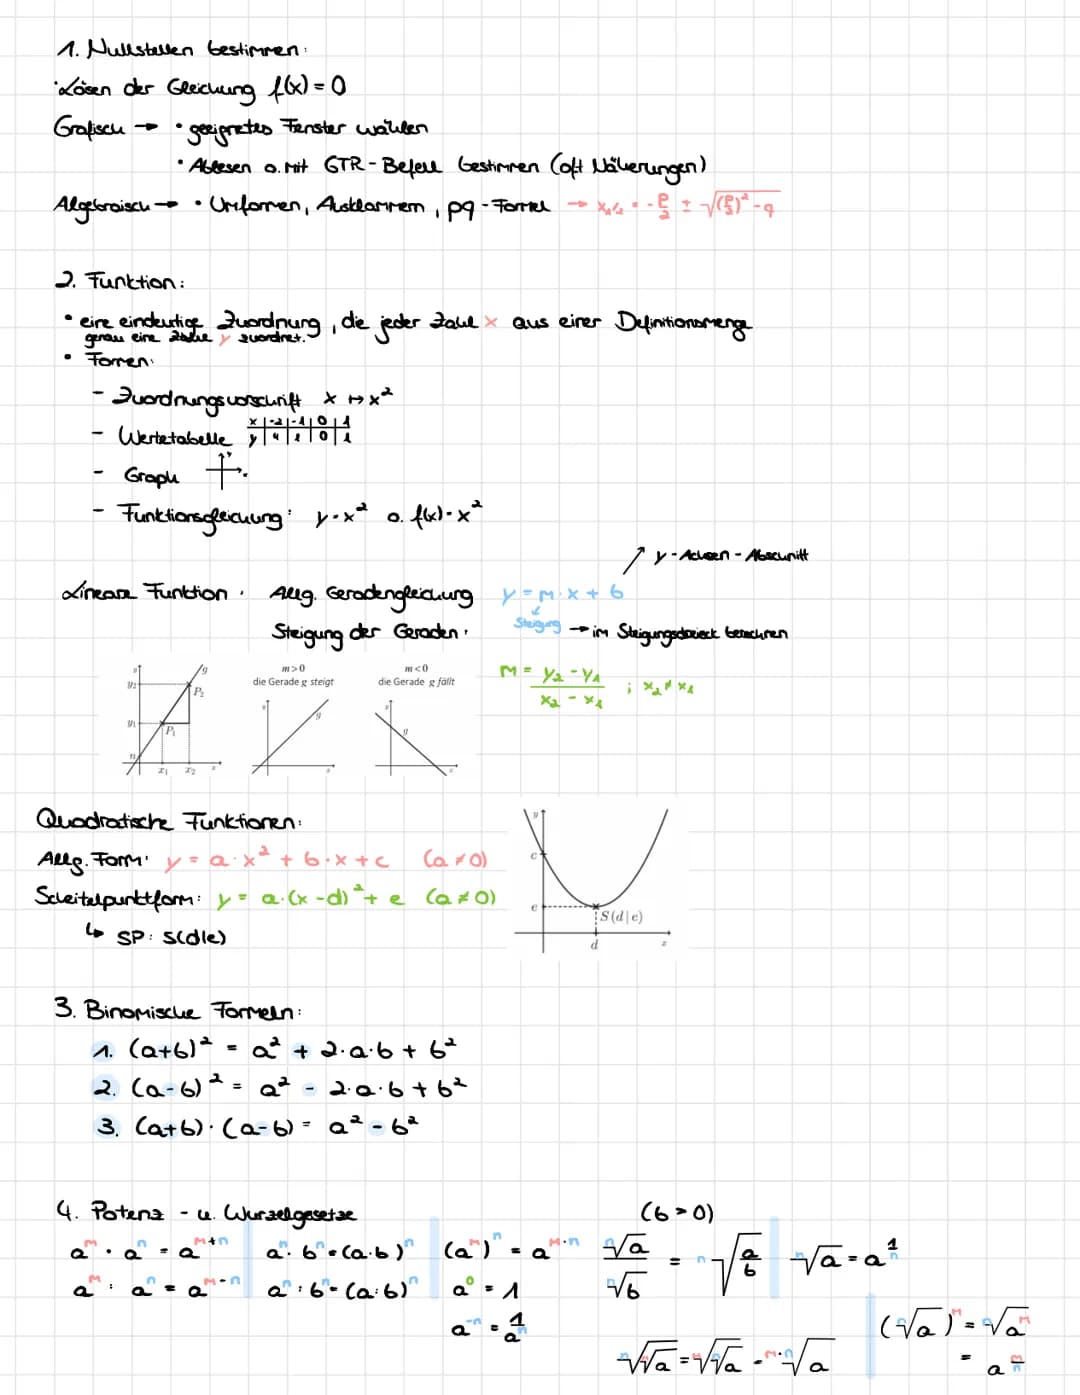 1. Nullstellen bestimmen:
• Lösen der Gleichung f(x) = 0
Grafisch → • geeignetes Fenster wählen
• Ablesen o. mit GTR-Befehl bestimmen (oft Näherungen)
Algebraisch → • Umformen, Ausklammern, pq-Formel → x₁/₂ = -p/2 ± √((p/2)² - q)
2. Funktion:
• eine eindeutige Zuordnung, die jeder Zahl x aus einer Definitionsmenge
genau eine Zahl y zuordnet.
• Formen:
- Zuordnungsvorschrift x ↦ x²
- Wertetabelle x | -2 | -1 | 0 | 1
y | 4 | 1 | 0 | 1
- Graph
- Funktionsgleichung: y = x² o. f(x) = x²
↗ y-Achsen-Abschnitt
Lineare Funktion: Allg. Geradengleichung y = m · x + b
Steigung der Geraden: Steigung → im Steigungsdreieck berechnen
m>0 m<0 m = (y₂ - y₁)/(x₂ - x₁) ; x₂ ≠ x₁
die Gerade g steigt die Gerade g fällt
y g
y₂ P₂
y₁ P₁
n
x₁ x₂ x
y g x
y g x
Quadratische Funktionen:
Allg. Form: y = a · x² + b · x + c (a ≠ 0)
Scheitelpunktform: y = a · (x - d)² + e (a ≠ 0)
↳ SP: S(d|e)
y
c
e S(d|e)
d x
3. Binomische Formeln:
1. (a+b)² = a² + 2·a·b + b²
2. (a-b)² = a² - 2·a·b + b²
3. (a+b)·(a-b) = a² - b²
4. Potenz - u. Wurzelgesetze (b > 0)
aᵐ · aⁿ = aᵐ⁺ⁿ | aⁿ · bⁿ = (a·b)ⁿ | (aᵐ)ⁿ = aᵐ·ⁿ ⁿ√a / ⁿ√b = ⁿ√(a/b) | ⁿ√a = a^(1/n)
aᵐ : aⁿ = aᵐ⁻ⁿ | aⁿ : bⁿ = (a:b)ⁿ | a⁰ = 1
a⁻ⁿ = 1/aⁿ
(ⁿ√a)ᵐ = ⁿ√aᵐ
ⁿ√(ᵐ√a) = ᵐ√(ⁿ√a) = ᵐ·ⁿ√a = a^(m/n)